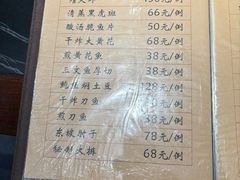 清蒸黑虎斑 66元/例
酸汤脆鱼片 50元/例
干炸大黄花 68元/例
煎黄花鱼 38元/例
三文鱼厚切 38元/例
鲍鱼焖土豆 128元/例
干炸刀鱼 元/例
煎刀鱼 38元/例
东坡肘子 78元/例
秘制大排 68元/例